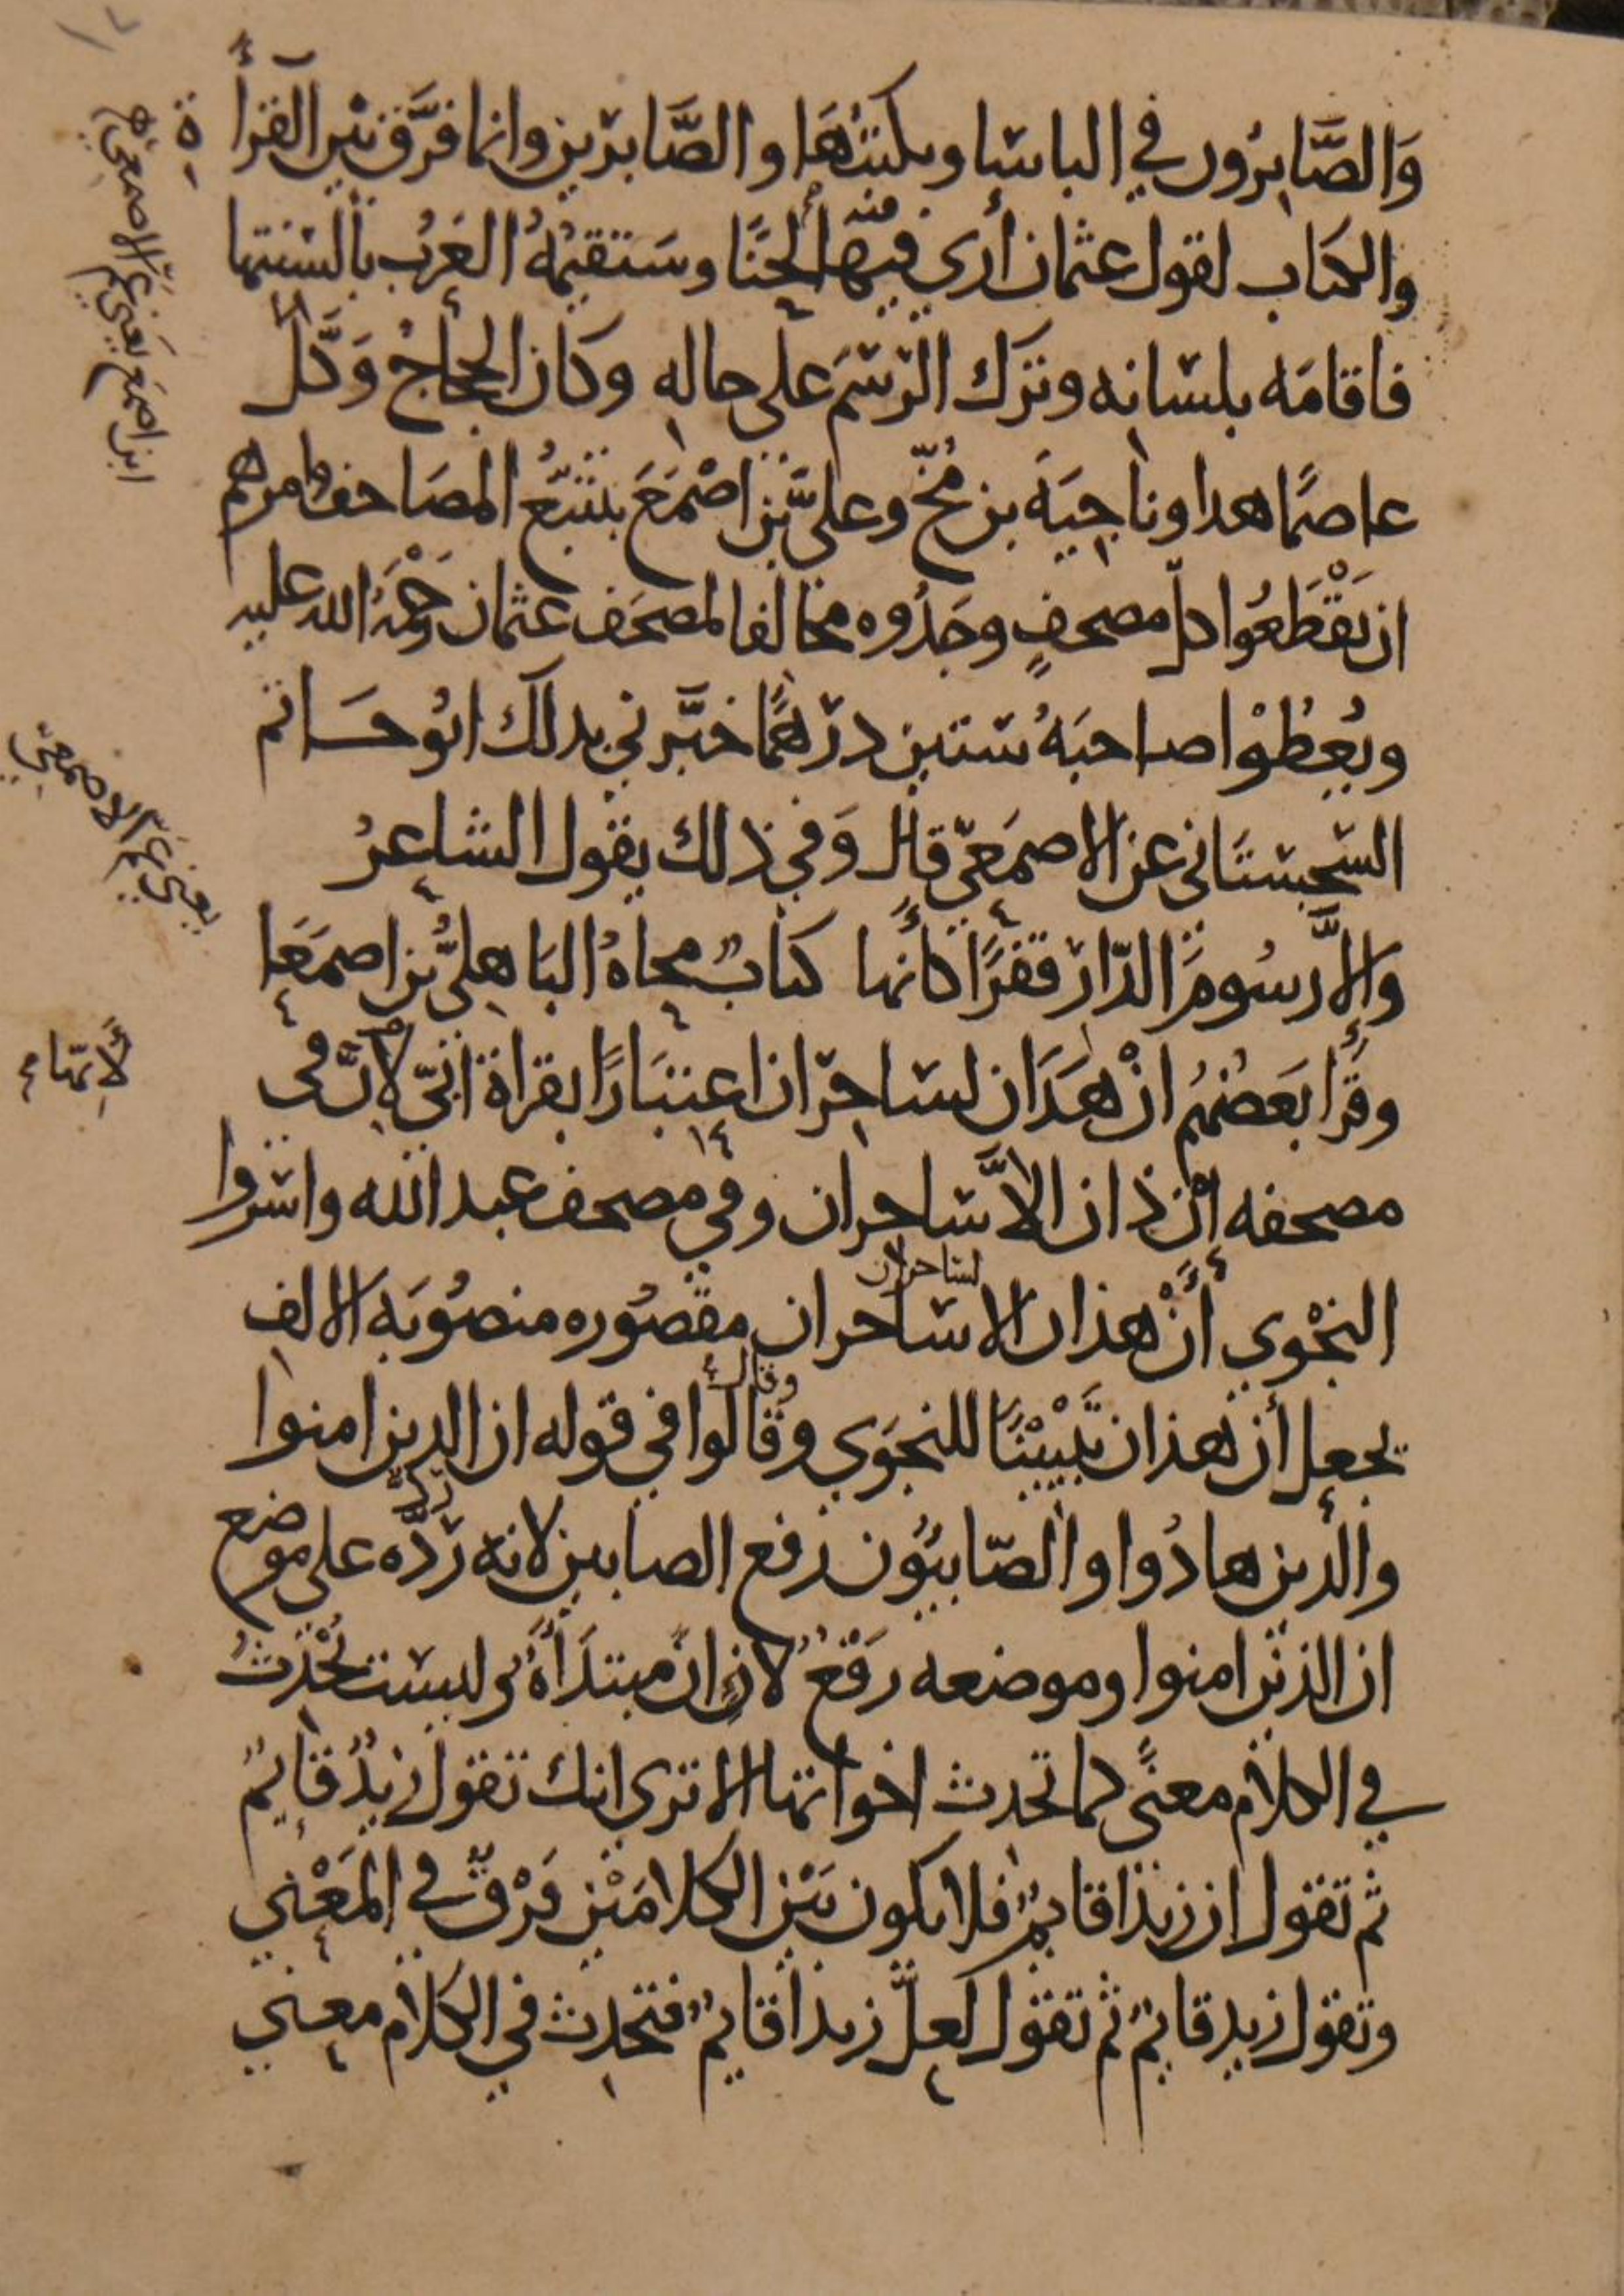 وَالصَّابِرُون في الباسا ويكتبُهَا والصَّابرين وانما فرَّق بين القرأ
ة
والكتاب لقول عثمان أري فيها لحنًا وستقيمُهُ العَرَب بألسنتها
منه
فاقامَه بلسانه وترك الرسمَ على حاله وكان الحجاج وَكَّل
عاصمًا هذا وناجيَةَ بن مُخّ وعليَّ بن اصْمَعَ بتتبُّع المصَاحف وامرهم
ان يَقْطَعُوا كلّ مصحفٍ وجَدُوه مخالفا لمصحَف عثمان رَحْمَةُ الله عليه
ويُعطُوْا صاحبَهُ ستين درهمًا خبَّرني بذلك ابُو حَاتم
السّجستَاني عن الاصمَعيّ قال وَفي ذلك يقول الشاعرُ
وَإلاَّ رسُومَ الدّار قفرًا كأنها كتابٌ محاهُ البَاهليُّ بن اصمَعَا
وقرَأ بَعضُهُم انْ هذَان لساحران اعتبَارًا بقراة أبيّ لانَّ في
مصحفه إنْ ذان إلاَّ ساحران وفي مصحف عبد الله واسَرّوا
لساحران
النجْوي أنْ هذان إلا ساحران مقصُوره منصُوبَه الالف
يجعل أن هذان تَبْيينًا للنجوَي وقالوا في قوله ان الذين امنوا
وقال
والذين هادُوا والصّابئُون رفع الصابين لانه ردّه على موضع
ردَّ
ان الذين امنوا وموضعه رَفْعٌ لان إنَّ مبتدَأةٌ وليست تُحْدثُ
في الكلام معنًى كما تحدث اخواتها الا تري انك تقول زيدٌ قايمٌ
ثم تقول ان زيدًا قايمٌ فلا يكون بَيْن الكلامَيْن فَرْقٌ في المَعْني
وتقول زيد قايمٌ ثم تقول لعلَّ زيدًا قايمٌ فتحدث في الكلام معني
ابن اصمَع يَعني عمّ الاصمعي
يعني عمّ الاصمعيّ
لأنّها